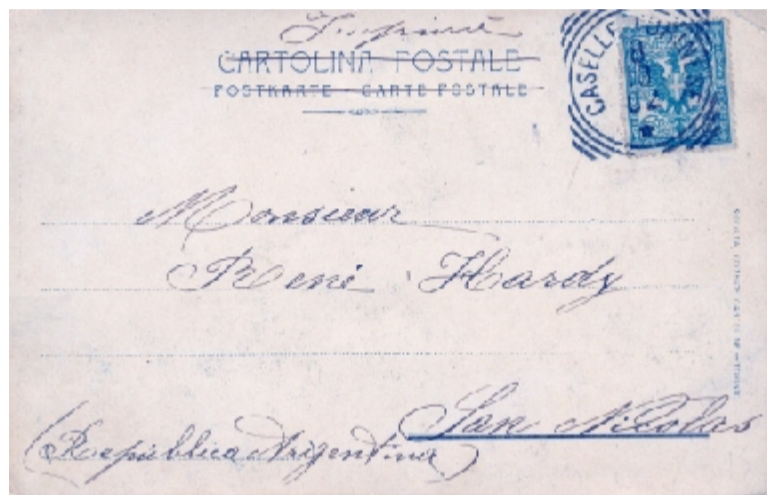 CARTOLINA POSTALE
POSTKARTE - CARTE POSTALE
CASELLE TORINESE
Monsieur
René Hardy
San Nicolas
(República Argentina)